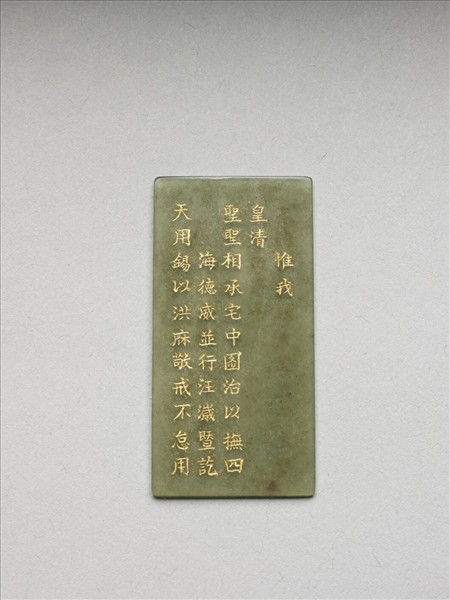 惟我
皇清
聖聖相承宅中圖治以撫四
海德威並行汪濊暨訖
天用錫以洪庥敬戒不怠用